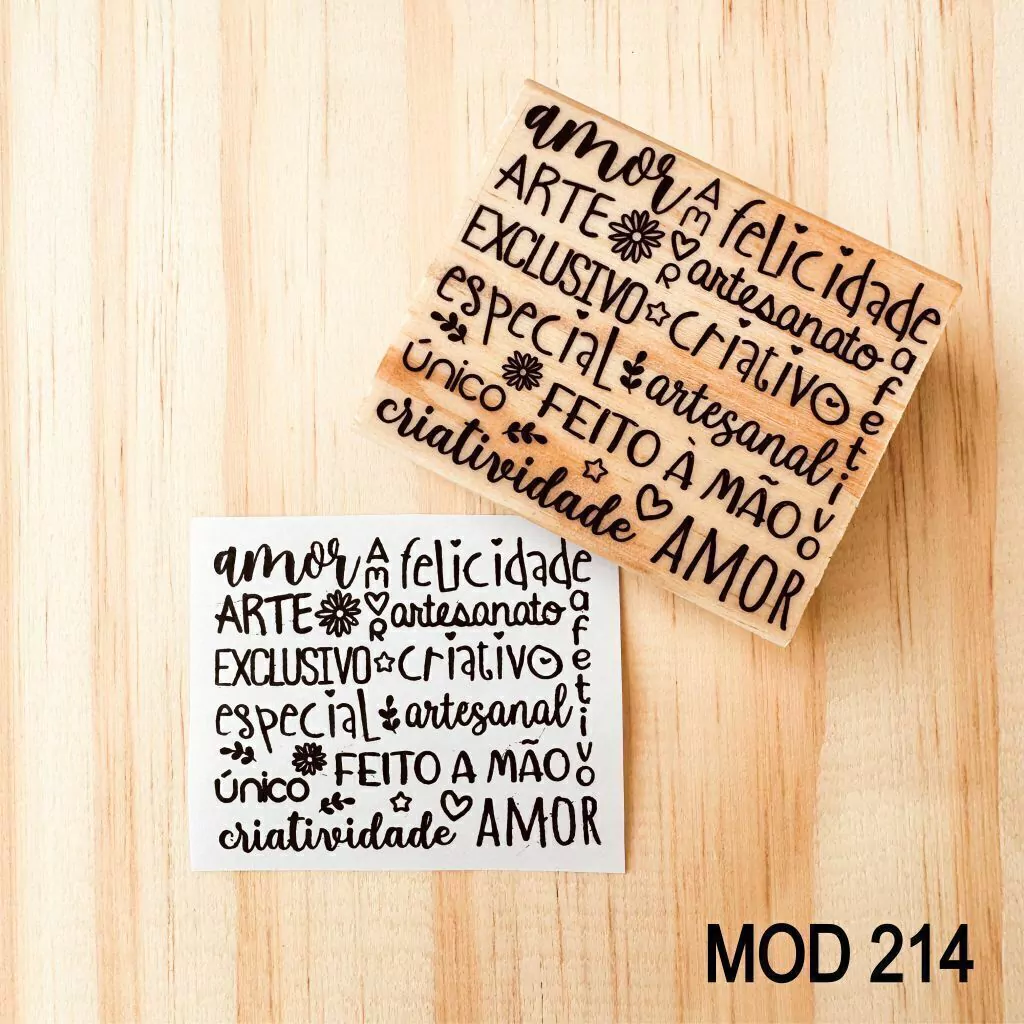 amor
AMOR
felicidade
ARTE
artesanato
afetivo
EXCLUSIVO
criativo
especial
artesanal
único
FEITO À MÃO
criatividade
AMOR
amor
AMOR
felicidade
ARTE
artesanato
afetivo
EXCLUSIVO
criativo
especial
artesanal
único
FEITO A MÃO
criatividade
AMOR
MOD 214